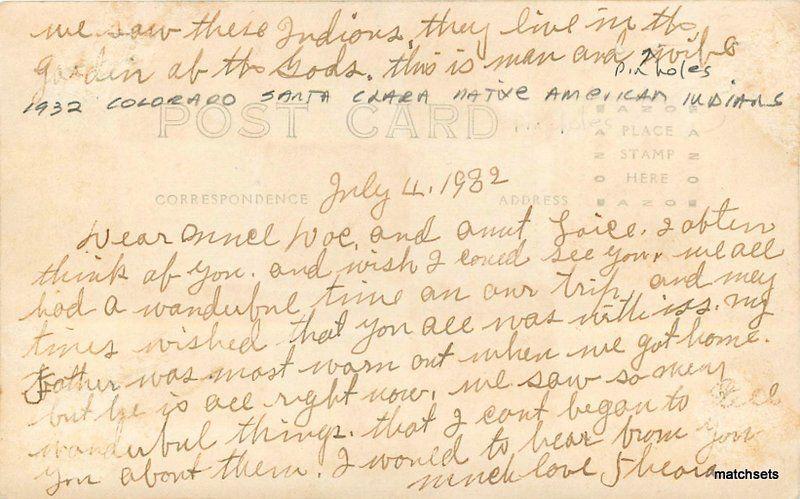 we saw these Indions, they live in the
Garden of the Gods. this is man and wife
Pin holes
1932 COLORADO SANTA CLARA NATIVE AMERICAN INDIANS
POST CARD
AZO
PLACE
STAMP
HERE
AZO
CORRESPONDENCE
ADDRESS
July 4. 1932
Dear Unncl Doc, and anut Joice. I obten
think of you. and wish I coued see you. we all
had a wanderbul time an our trip, and meny
times wished that you all was with iss. my
Father was most warn out when we got home.
but he is all right now. we saw so meny
wanderbul things. that I cant began to tell
you about them. I would to hear from you
much love
matchsets